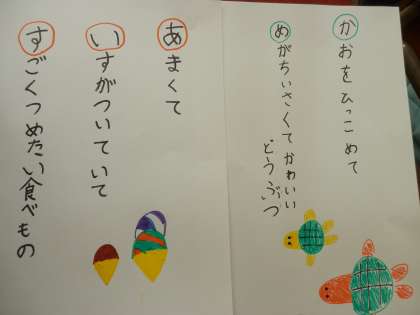 かおをひっこめて
めがちぃさくてかわいい
どうぶつ
あまくて
いすがついていて
すごくつめたい食べもの